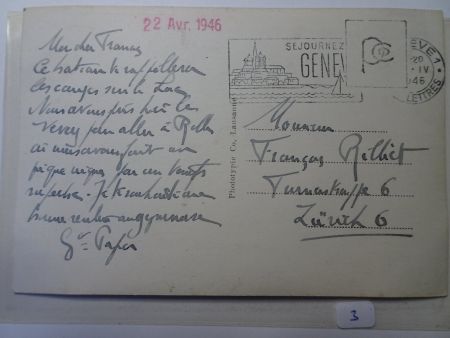 22 Avr. 1946
Mon cher François
Ce bateau te rappellera
les courses sur le Lac.
Nous avons pris hier le
Vevey pour aller à Rolle
où nous avons fait un
pique nique par un temps
superbe. Je te souhaite une
bonne rentrée au gymnase
Gd. Papa
SEJOURNEZ
GENEV
EVE 1
20
IV
1946
LETTRES
Phototypie Co, Lausanne
Monsieur
François Rilliet
Turnerstrasse 6
Zürich 6
3